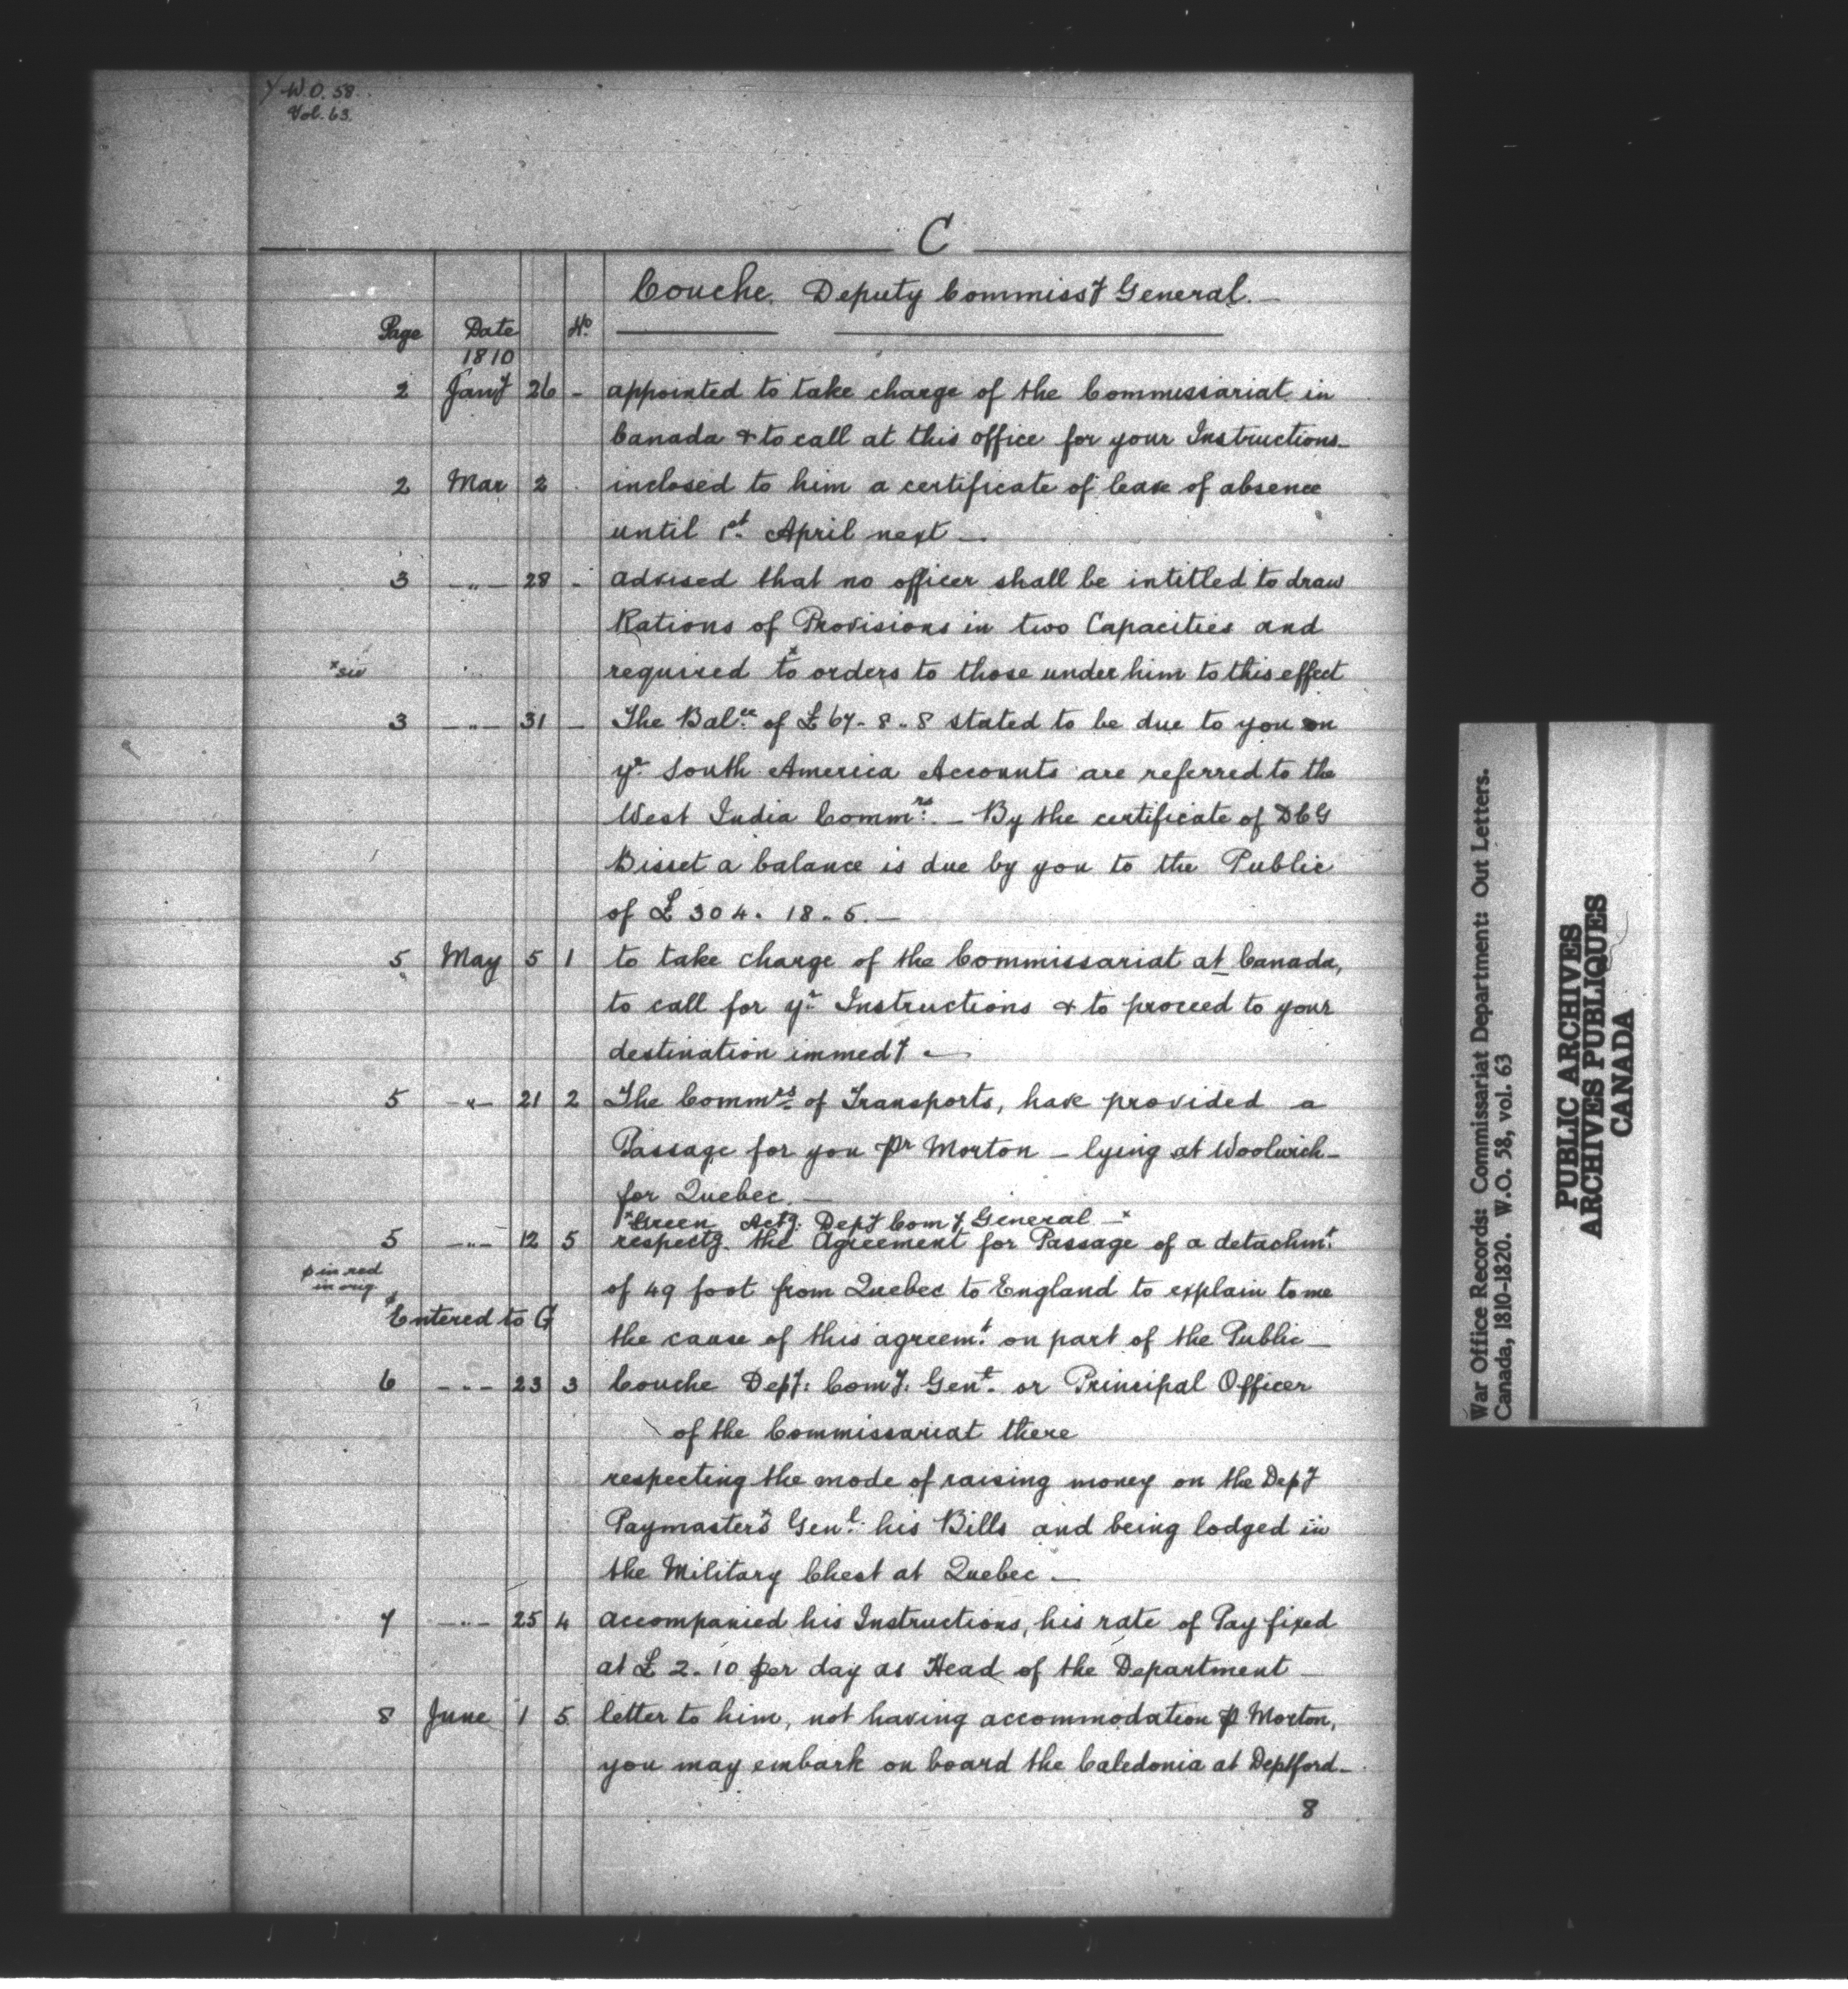 W.O. 58.
Vol. 63.
C
Couche. Deputy Commissy General.—
Page Date No
1810
2 Jany 26 - appointed to take charge of the Commissariat in
Canada & to call at this office for your Instructions—
2 Mar 2 inclosed to him a certificate of leave of absence
until 1st April next—
3 —"— 28 - advised that no officer shall be intitled to draw
Rations of Provisions in two Capacities and
xsic required to x orders to those under him to this effect
3 —"— 31 - The Balce of £67-8-8 stated to be due to you on
yr South America Accounts are referred to the
West India Commrs. — By the certificate of DCG
Bisset a balance is due by you to the Public
of £304. 18. 5.—
5 May 5 1 to take charge of the Commissariat at Canada,
to call for yr Instructions & to proceed to your
destination immedy—
5 —"— 21 2 The Commrs of Transports, have provided a
Passage for you pr Morton — lying at Woolwich—
for Quebec.—
xGreen Actg. Depy Comy General—x
5 —"— 12 5 respectg. the Agreement for Passage of a detachmt
φ in red
in orig.
of 49 foot from Quebec to England to explain to me
φ Entered to G
the cause of this agreemt on part of the Public—
6 —"— 23 3 Couche Depy: Comy: Genl. or Principal Officer
of the Commissariat there
respecting the mode of raising money on the Depy
Paymaster's Genl. his Bills and being lodged in
the Military Chest at Quebec—
7 —"— 25 4 accompanied his Instructions, his rate of Pay fixed
at £2.10 per day as Head of the Department—
8 June 1 5 letter to him, not having accommodation p Morton,
you may embark on board the Caledonia at Deptford—
8
War Office Records: Commissariat Department: Out Letters.
Canada, 1810-1820. W.O. 58, vol. 63
PUBLIC ARCHIVES
ARCHIVES PUBLIQUES
CANADA